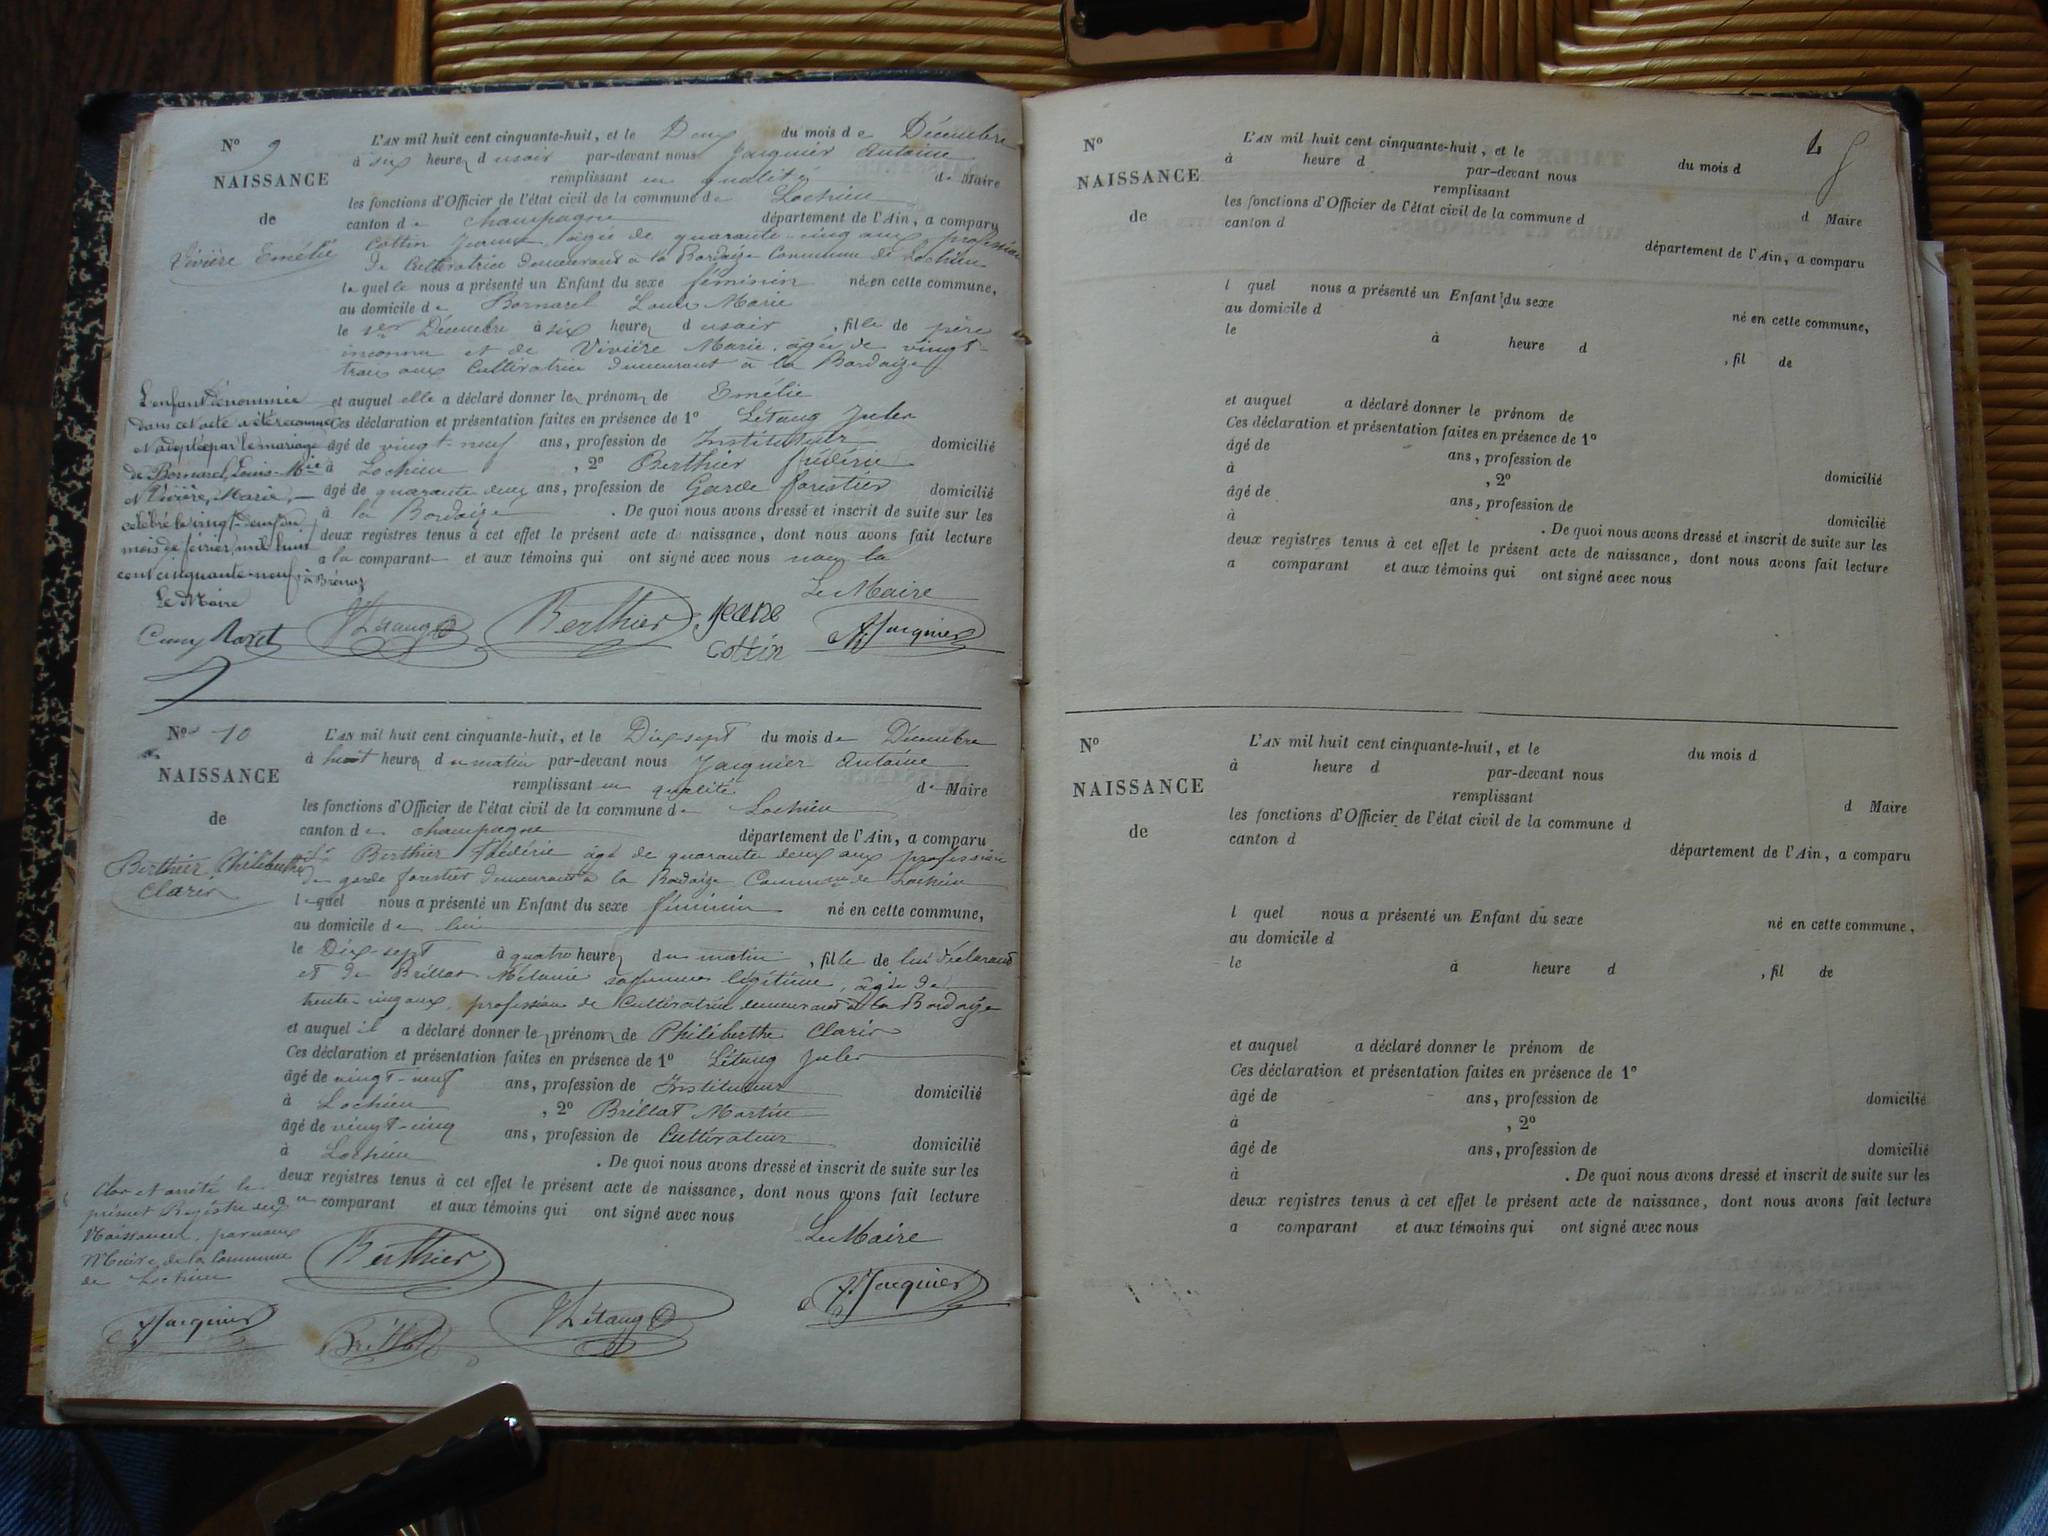 N° 9
NAISSANCE
de
Vivière Emélie
L'AN mil huit cent cinquante-huit, et le Deux du mois de Décembre
à six heures du soir par-devant nous Jacquier Antoine
remplissant en qualité de Maire
les fonctions d'Officier de l'état civil de la commune de Lochieu
canton de Champagne département de l'Ain, a comparu
Cottin Jeanne, âgée de quarante-cinq ans, profession
de Cultivatrice demeurant à la Bordaize Commune de Lochieu
laquelle nous a présenté un Enfant du sexe féminin né en cette commune,
au domicile de Bornarel Louis Marie
le 1er Décembre à six heures du soir, fille de père
inconnu et de Vivière Marie, âgée de vingt-
trois ans Cultivatrice demeurant à la Bordaize
et auquel elle a déclaré donner les prénoms de Emélie
Ces déclaration et présentation faites en présence de 1° Létang Jules
âgé de vingt-neuf ans, profession de Instituteur domicilié
à Lochieu, 2° Berthier Frédéric
âgé de quarante deux ans, profession de Garde forestier domicilié
à la Bordaize. De quoi nous avons dressé et inscrit de suite sur les
deux registres tenus à cet effet le présent acte de naissance, dont nous avons fait lecture
a la comparant et aux témoins qui ont signé avec nous
Le Maire
L'enfant dénommée
dans cet acte a été reconnue
et adoptée par le mariage
de Bornarel, Louis-Mie
et Vivière, Marie,
célébré le vingt-deux du
mois de février mil huit
cent cinquante-neuf, à Brénaz
Le Maire
JLétang Berthier Jeane Cottin AJacquier
N° 10
NAISSANCE
de
Berthier Philiberthe
Claris
L'AN mil huit cent cinquante-huit, et le Dix-sept du mois de Décembre
à huit heures du matin par-devant nous Jacquier Antoine
remplissant en qualité de Maire
les fonctions d'Officier de l'état civil de la commune de Lochieu
canton de Champagne département de l'Ain, a comparu
Berthier Frédéric âgé de quarante deux ans profession
de garde forestier demeurant à la Bordaize Commune de Lochieu
lequel nous a présenté un Enfant du sexe féminin né en cette commune,
au domicile de lui
le Dix-sept à quatre heures du matin, fille de lui déclarant
et de Brillat Mélanie sa femme légitime, âgée de
trente-cinq ans, profession de Cultivatrice demeurant à la Bordaize
et auquel il a déclaré donner les prénoms de Philiberthe Claris
Ces déclaration et présentation faites en présence de 1° Létang Jules
âgé de vingt-neuf ans, profession de Instituteur domicilié
à Lochieu, 2° Brillat Martin
âgé de vingt-cinq ans, profession de Cultivateur domicilié
à Lochieu. De quoi nous avons dressé et inscrit de suite sur les
deux registres tenus à cet effet le présent acte de naissance, dont nous avons fait lecture
au comparant et aux témoins qui ont signé avec nous
Le Maire
Clos et arrêté le
présent Registre des
Naissances, par nous
Maire de la Commune
de Lochieu
Berthier
AJacquier Brillat JLétang AJacquier
N°
NAISSANCE
de
L'AN mil huit cent cinquante-huit, et le du mois d
à heure d par-devant nous
remplissant d Maire
les fonctions d'Officier de l'état civil de la commune d
canton d département de l'Ain, a comparu
l quel nous a présenté un Enfant du sexe né en cette commune,
au domicile d
le à heure d , fil de
et auquel a déclaré donner le prénom de
Ces déclaration et présentation faites en présence de 1°
âgé de ans, profession de domicilié
à , 2°
âgé de ans, profession de domicilié
à . De quoi nous avons dressé et inscrit de suite sur les
deux registres tenus à cet effet le présent acte de naissance, dont nous avons fait lecture
a comparant et aux témoins qui ont signé avec nous
N°
NAISSANCE
de
L'AN mil huit cent cinquante-huit, et le du mois d
à heure d par-devant nous
remplissant d Maire
les fonctions d'Officier de l'état civil de la commune d
canton d département de l'Ain, a comparu
l quel nous a présenté un Enfant du sexe né en cette commune,
au domicile d
le à heure d , fil de
et auquel a déclaré donner le prénom de
Ces déclaration et présentation faites en présence de 1°
âgé de ans, profession de domicilié
à , 2°
âgé de ans, profession de domicilié
à . De quoi nous avons dressé et inscrit de suite sur les
deux registres tenus à cet effet le présent acte de naissance, dont nous avons fait lecture
a comparant et aux témoins qui ont signé avec nous